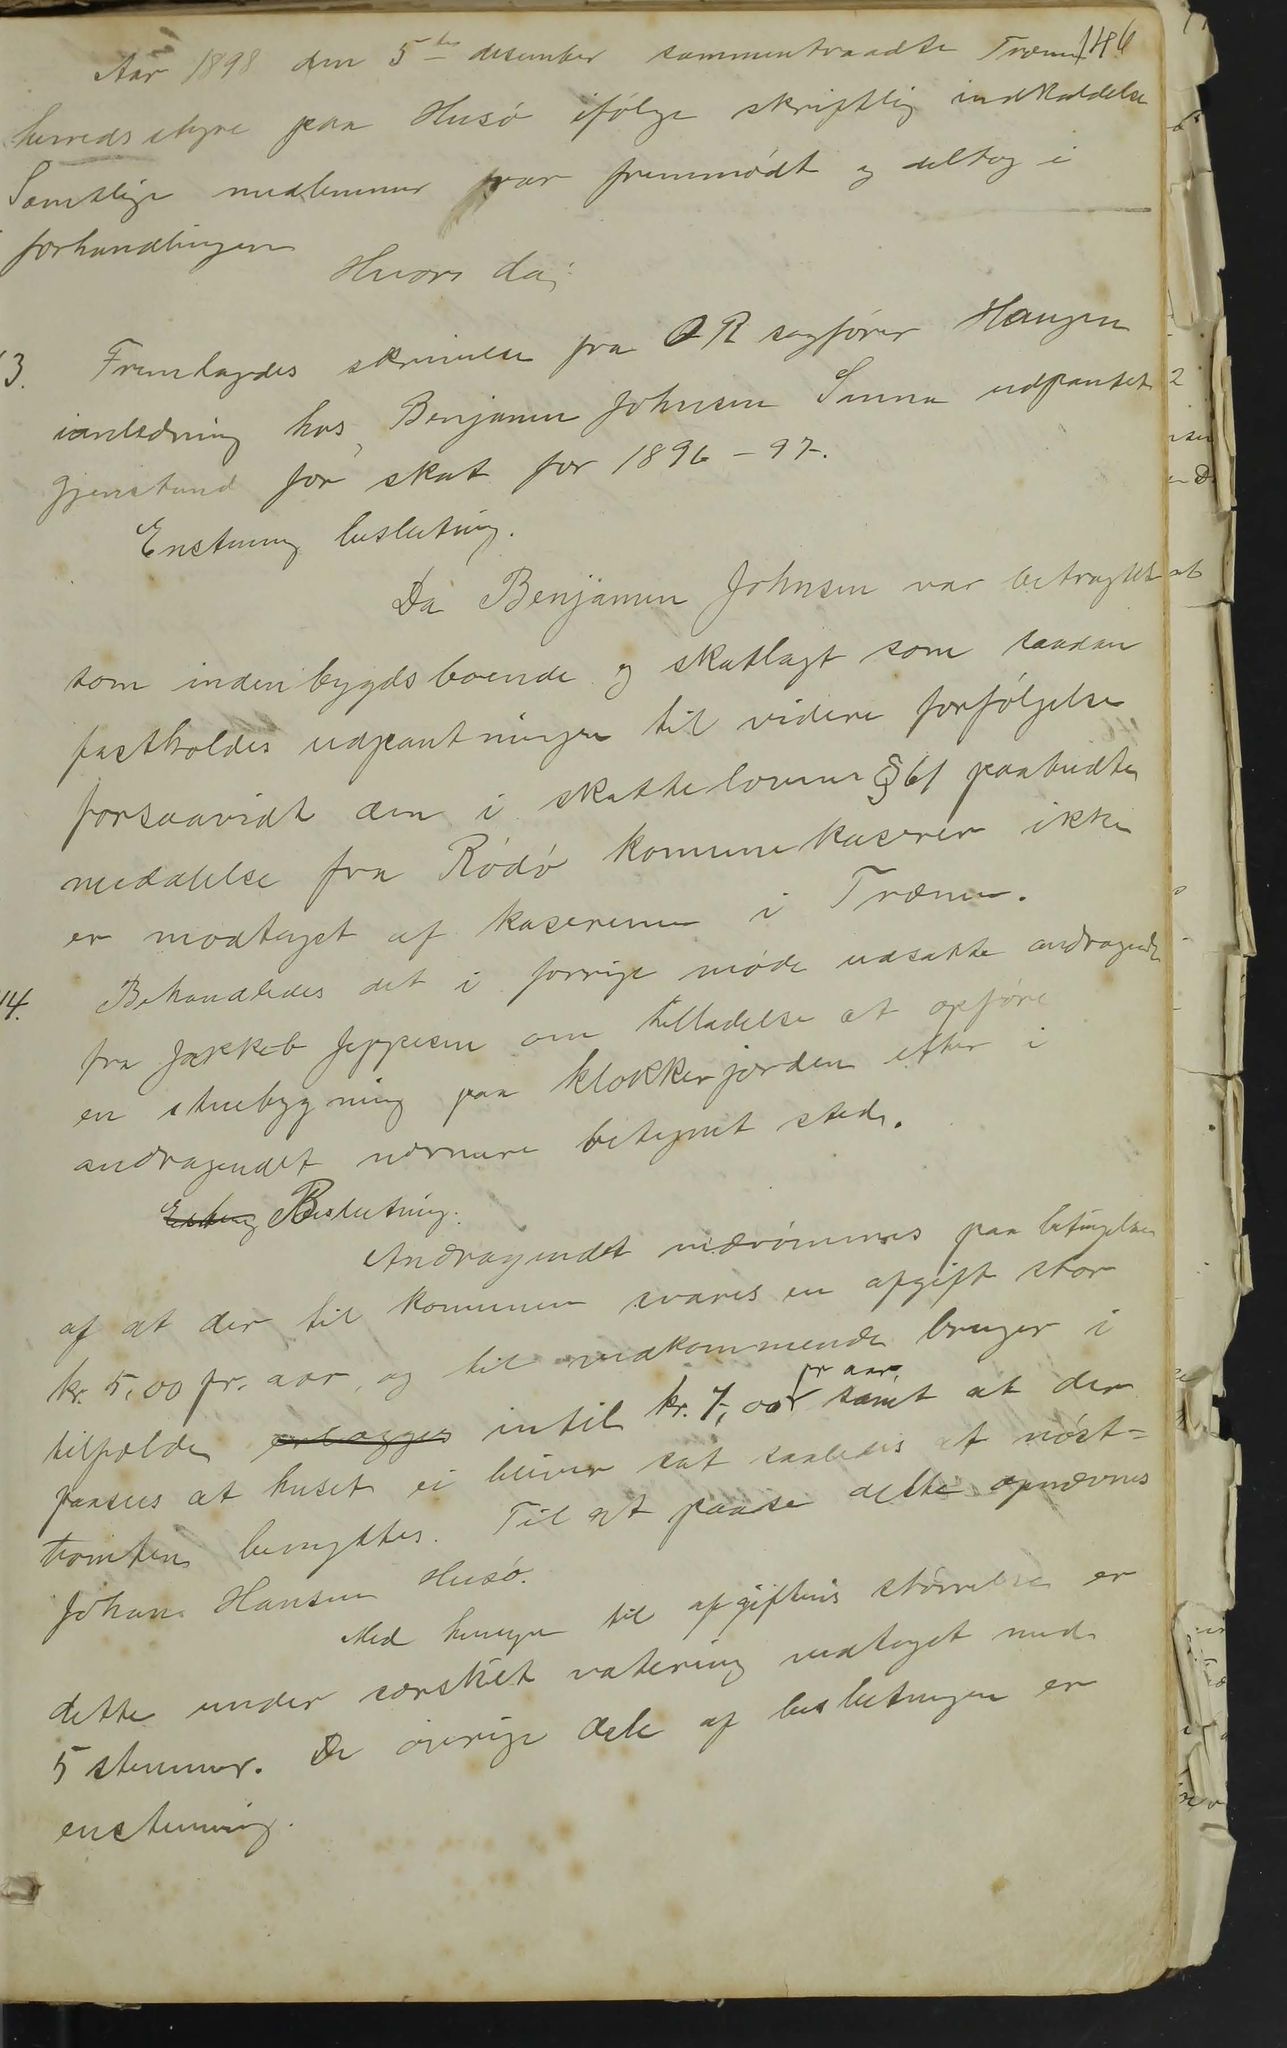 146
Aar 1898 den 5te desember sammentraadte Træna
herredsstyre paa Husö ifölge skriftlig indkaldelse
Samtlige medlemmer var fremmödt og deltog i
forhandlingen
Hvors da;
3. Fremlagdes skrivelse fra OR sagförer Haugen
ianledning hos Benjamin Johnsen Sanna udpantet
gjenstand for skat for 1896-97.
Enstemmig beslutning.
Da Benjamin Johnsen var betragtet
som indenbygds boende og skatlagt som saadan
fastholdes udpantningen til videre forfölgelse
forsaavidt den i skatteloven § 61 paabudte
meddelelse fra Rödö kommunekaserer ikke
er modtaget af kasereren i Træna.
14. Behandledes det i forrige möde udsatte andragende
fra Jakkob Jeppesen om tilladelse at opföre
en stuebygning paa klokkerjorden efter i
andragendet nærmere betegnet sted.
Beslutning.
Andragendet indrömmes paa betingelse
af at der til kommunen svares en afgift stor
kr. 5,00 pr. aar, og til vedkommende bruger i
pr aar
tilfælde erlægges intil kr. 7,00 samt at der
paasees at huset ei bliver sat saaledes at nöst=
tomten benyttes. Til at paase dette opnævnes
Johan Hansen Husö.
Med hensyn til afgiftens störrelse er
dette under særskilt votering vedtaget med
5 stemmer. De övrige dele af beslutningen er
enstemmig.